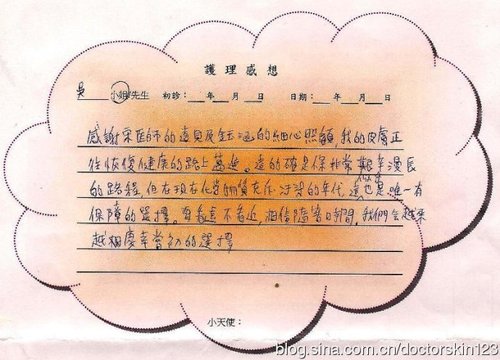 護理感想
吳 小姐/先生 初診: 年 月 日 日期: 年 月 日
感謝宋醫師的遠見及 的細心照顧,我的皮膚正
往恢復健康的路上邁進。這的確是條非常艱辛漫長
的路程,但在現在化學物質充斥 汙染的年代,這也是唯一有
保障的選擇。 長看不看近,相信隨著時間,我們會越來
越相慶幸當初的選擇
小天使:
blog.sina.com.cn/doctorskin123